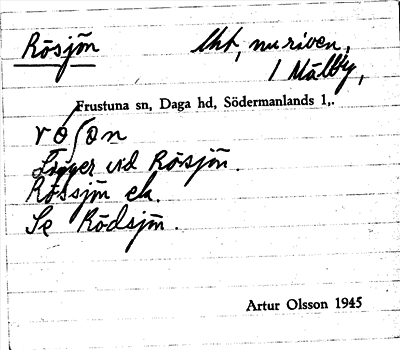 Rösjön
lht, nu riven,
1 Mälby,
Frustuna sn, Daga hd, Södermanlands l,.
rö ʃ ɵ n
Ligger vid Rösjön.
Rössjön ek.
Se Rödsjön.
Artur Olsson 1945